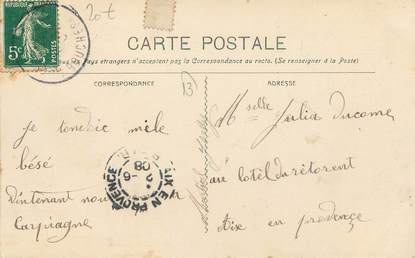 20 t
REPUBLIQUE
5c
POSTES
13
CARTE POSTALE
pays étrangers n'acceptent pas la Correspondance au recto. (Se renseigner à la Poste)
CORRESPONDANCE
ADRESSE
Mselle Julia Ducome
je tondoic mile
bésé
au lotel du rétorent
Dintenant nou
Carpiagne
Aix en provençe
AIX EN PROVENCE
08